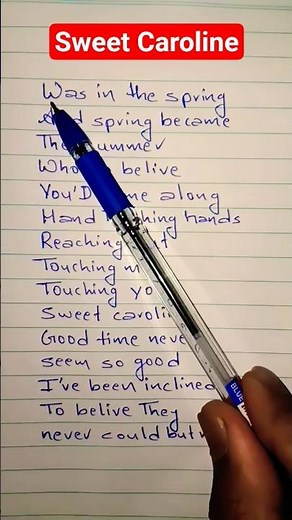 Sweet Caroline
Was in the spring
spring became
The ummer
Who belive
You'D me along
Hand hing Hands
Reaching t
Touching m
Touching yo
Sweet caroli
Good time neve
seem so good
I've been inclined
To belive They
never could but
BLUE